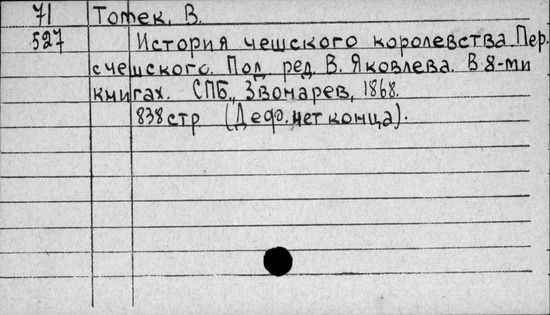 71 Томек, В.
527 История чешского королевства. Пер.
с чешского. Под ред. В. Яковлева. В 8-ми
книгах. СПБ., Звонарев, 1868.
838 стр (Деф. нет конца).